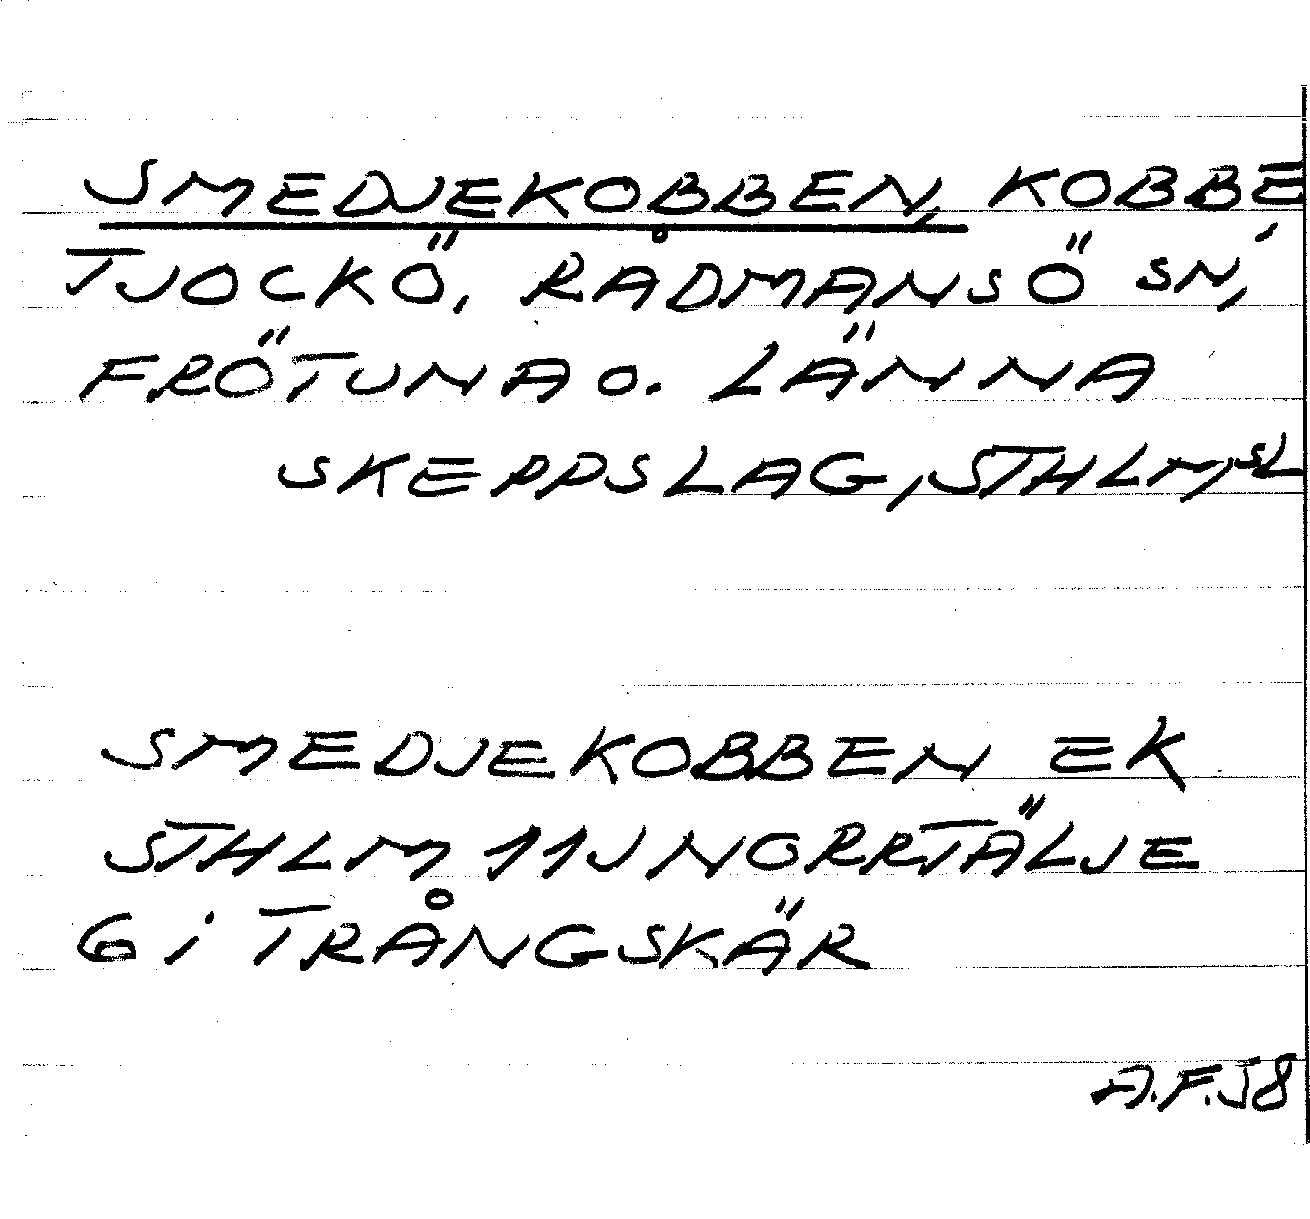 SMEDJEKOBBEN, KOBBE
TJOCKÖ, RÅDMANSÖ SN,
FRÖTUNA O. LÄNNA
SKEPPSLAG, STHLM,SL
SMEDJEKOBBEN EK
STHLM 11J NORRTÄLJE
G i TRÅNGSKÄR
A.F.58